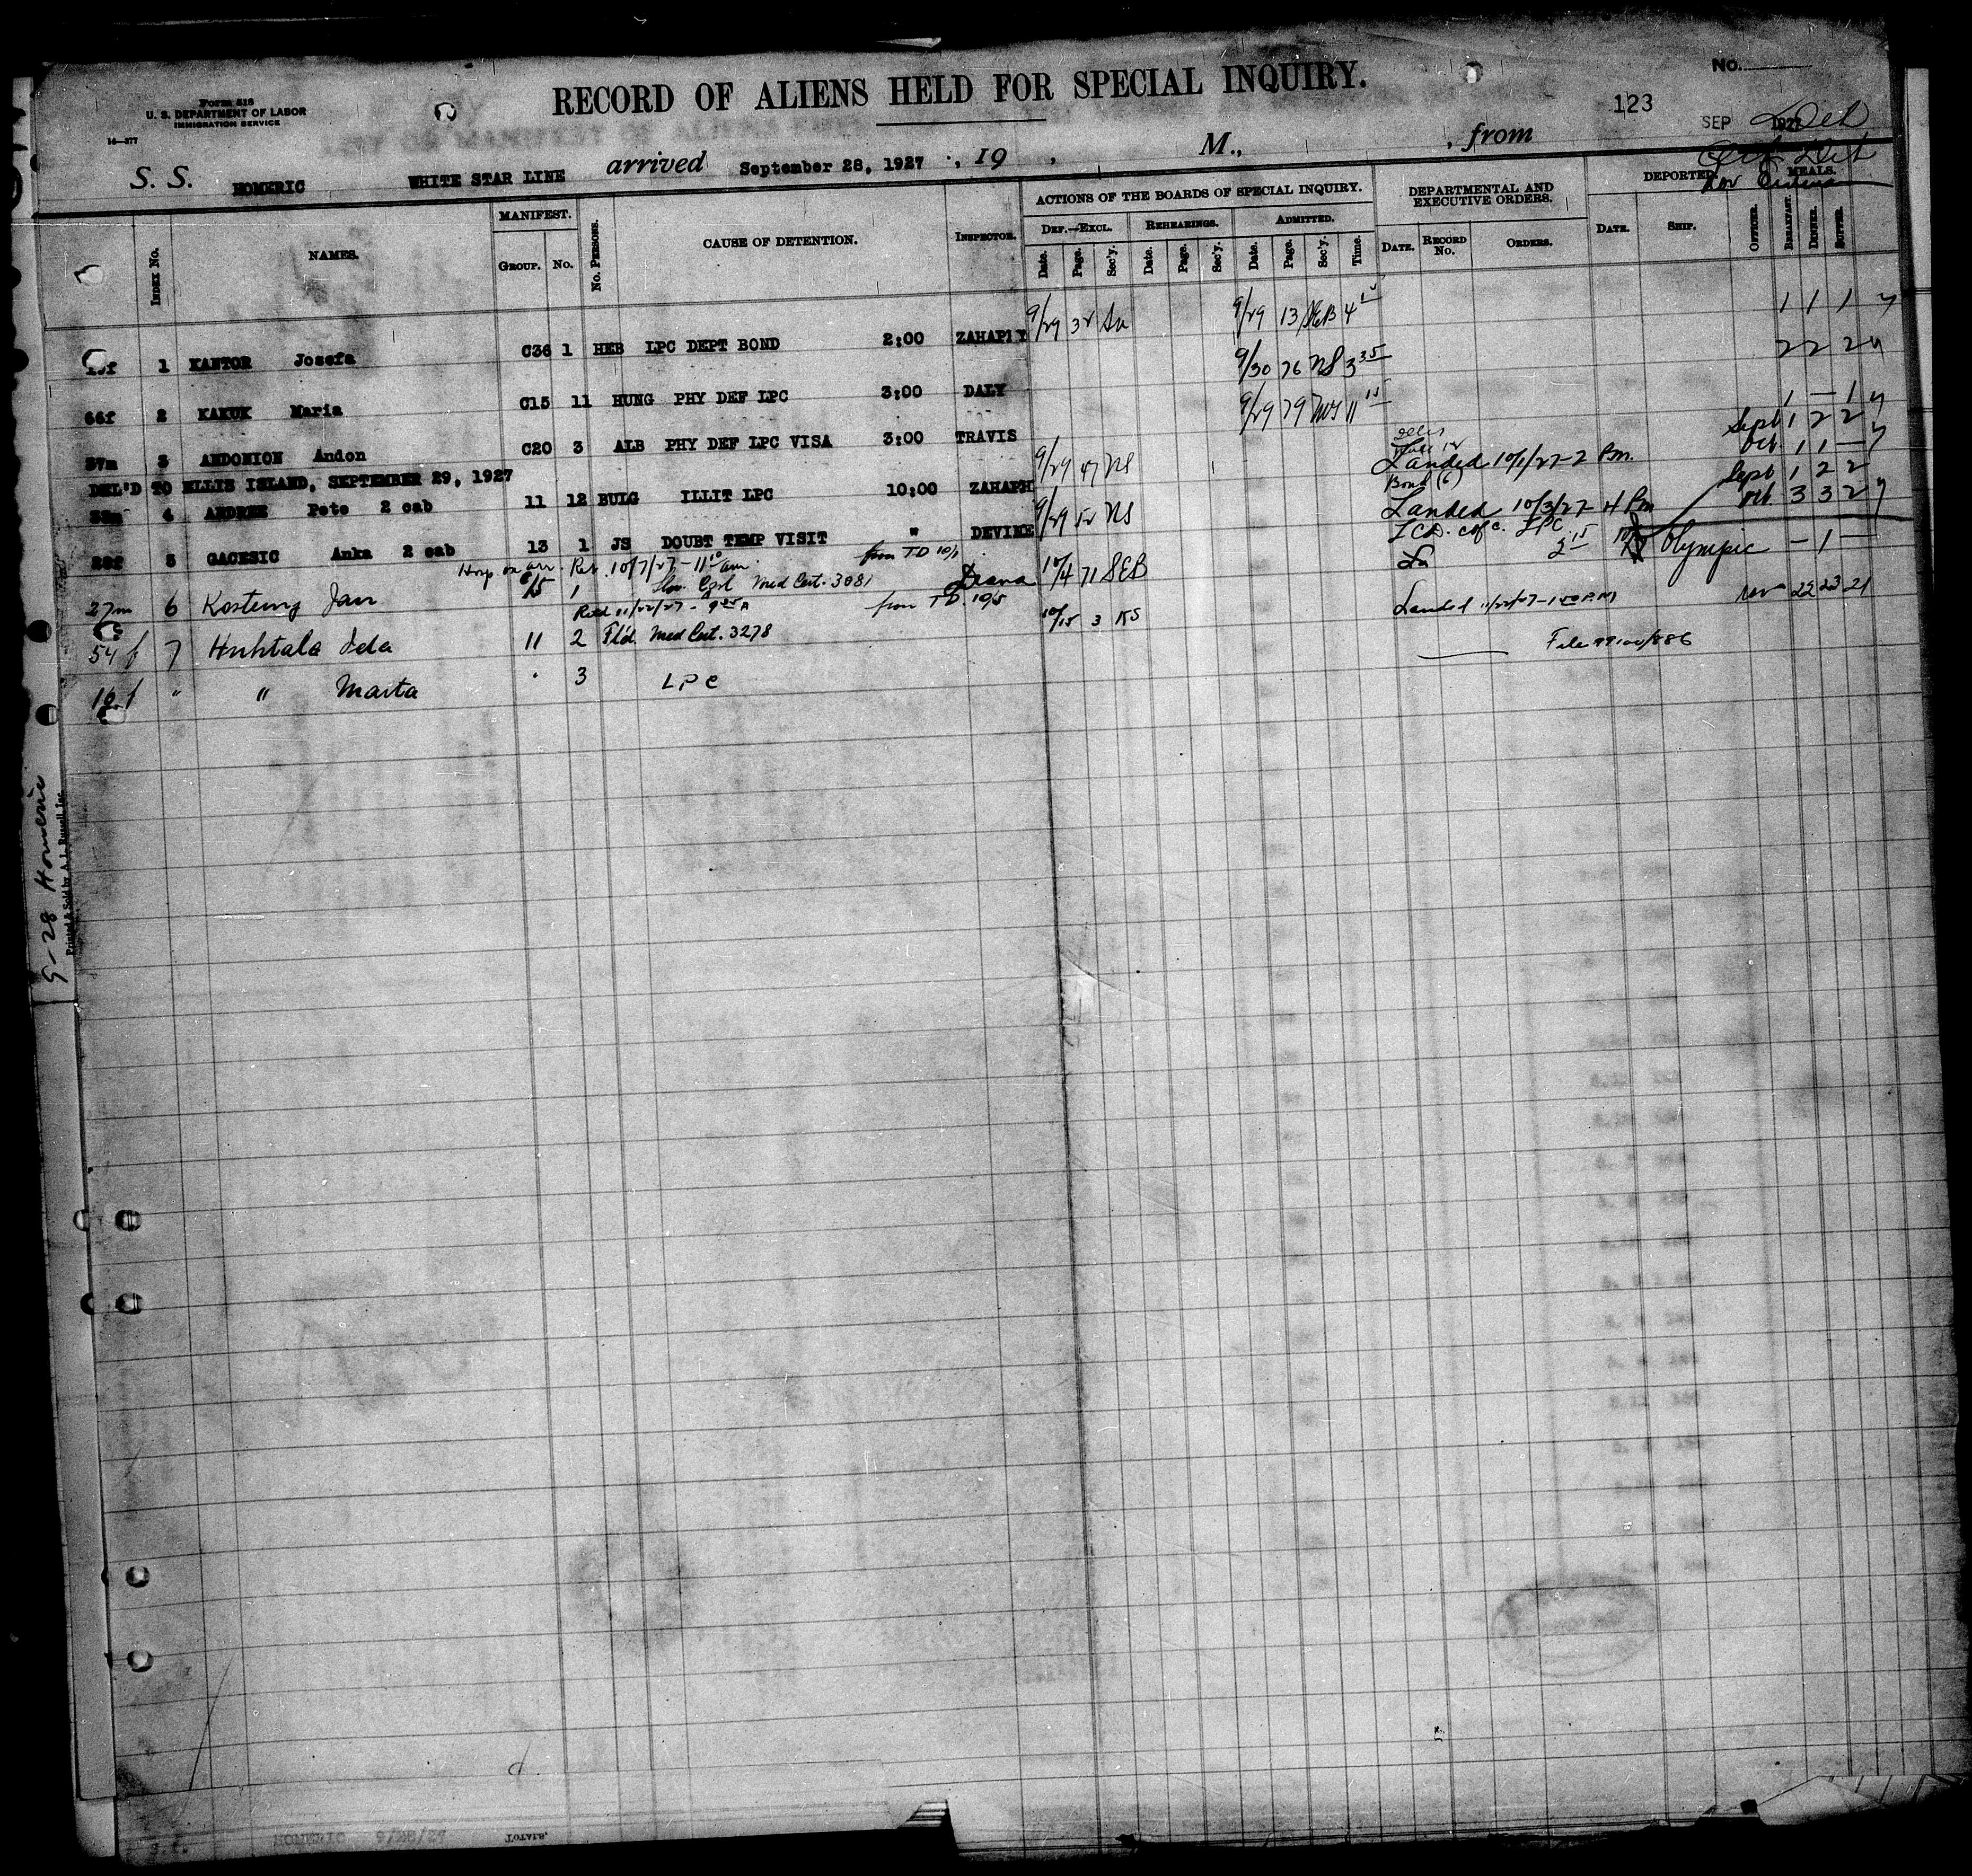 No.
Form 518
U. S. DEPARTMENT OF LABOR
IMMIGRATION SERVICE
16—377
RECORD OF ALIENS HELD FOR SPECIAL INQUIRY.
123
SEP 1927
S. S. HOMERIC WHITE STAR LINE arrived September 28, 1927 , 19 , M., , from
INDEX NO. NAMES. MANIFEST. GROUP. NO. NO. PERSONS. CAUSE OF DETENTION. INSPECTOR.
ACTIONS OF THE BOARDS OF SPECIAL INQUIRY.
DEF.—EXCL. Date. Page. Sec'y. REHEARINGS. Date. Page. Sec'y. ADMITTED. Date. Page. Sec'y. Time.
DEPARTMENTAL AND EXECUTIVE ORDERS. DATE. RECORD NO. ORDERS.
DEPORTED. DATE. SHIP. OFFICER. MEALS. BREAKFAST. DINNER. SUPPER.
1 KANTOR Josefa C36 1 HEB LPC DEPT BOND 2:00 ZAHAPLY 9/29 9/29 13 SEB 4 1 1 1
66f 2 KAKUK Maria C15 11 HUNG PHY DEF LPC 3:00 DALY 9/30 76 NS 3 35 2 2 2
37m 3 ANDONION Andon C20 3 ALB PHY DEF LPC VISA 3:00 TRAVIS 9/29 79 11 15 1 — 1
DEL'D TO ELLIS ISLAND, SEPTEMBER 29, 1927
4 ANDREE Pete 2 cab 11 12 BULG ILLIT LPC 10:00 ZAHAPH 9/29 47 NS Landed 10/1/27 - 2 Pm. Sept 1 2 2
Oct. 1 1 —
Bond (6)
28f 5 GACESIC Anka 2 cab 13 1 JS DOUBT TEMP VISIT " DEVINE 9/29 52 NS Landed 10/3/27 4 Pm Sept 1 2 2
Oct. 3 3 2
Hosp on arr. Ret. 10/7/27 - 11 10 am. from T D 10/1
27m 6 Jan 1 Med Cert. 3081 10/4 71 SEB Olympic — 1 —
Retd 11/22/27 - from T D 10/5
54 f 7 Huhtala Ida 11 2 Fld. Med Cert. 3278 10/15 3 KS Landed 11/22/27 - PM Nov 22 23 21
16 f " " Marta " 3 LPC File 99100/886
9-28 Homeric
Printed & Sold by A. L. Russell, Inc.
HOMERIC 9/28/27
TOTALS.